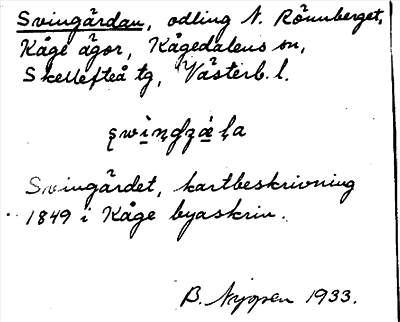 Svingärdan, odling N. Rönnberget,
Kåge ägor, Kågedalens sn,
Skellefteå tg, Västerb. l.
Svingärdet, kartbeskrivning
1849 i Kåge byaskrin.
B. Nygren 1933.